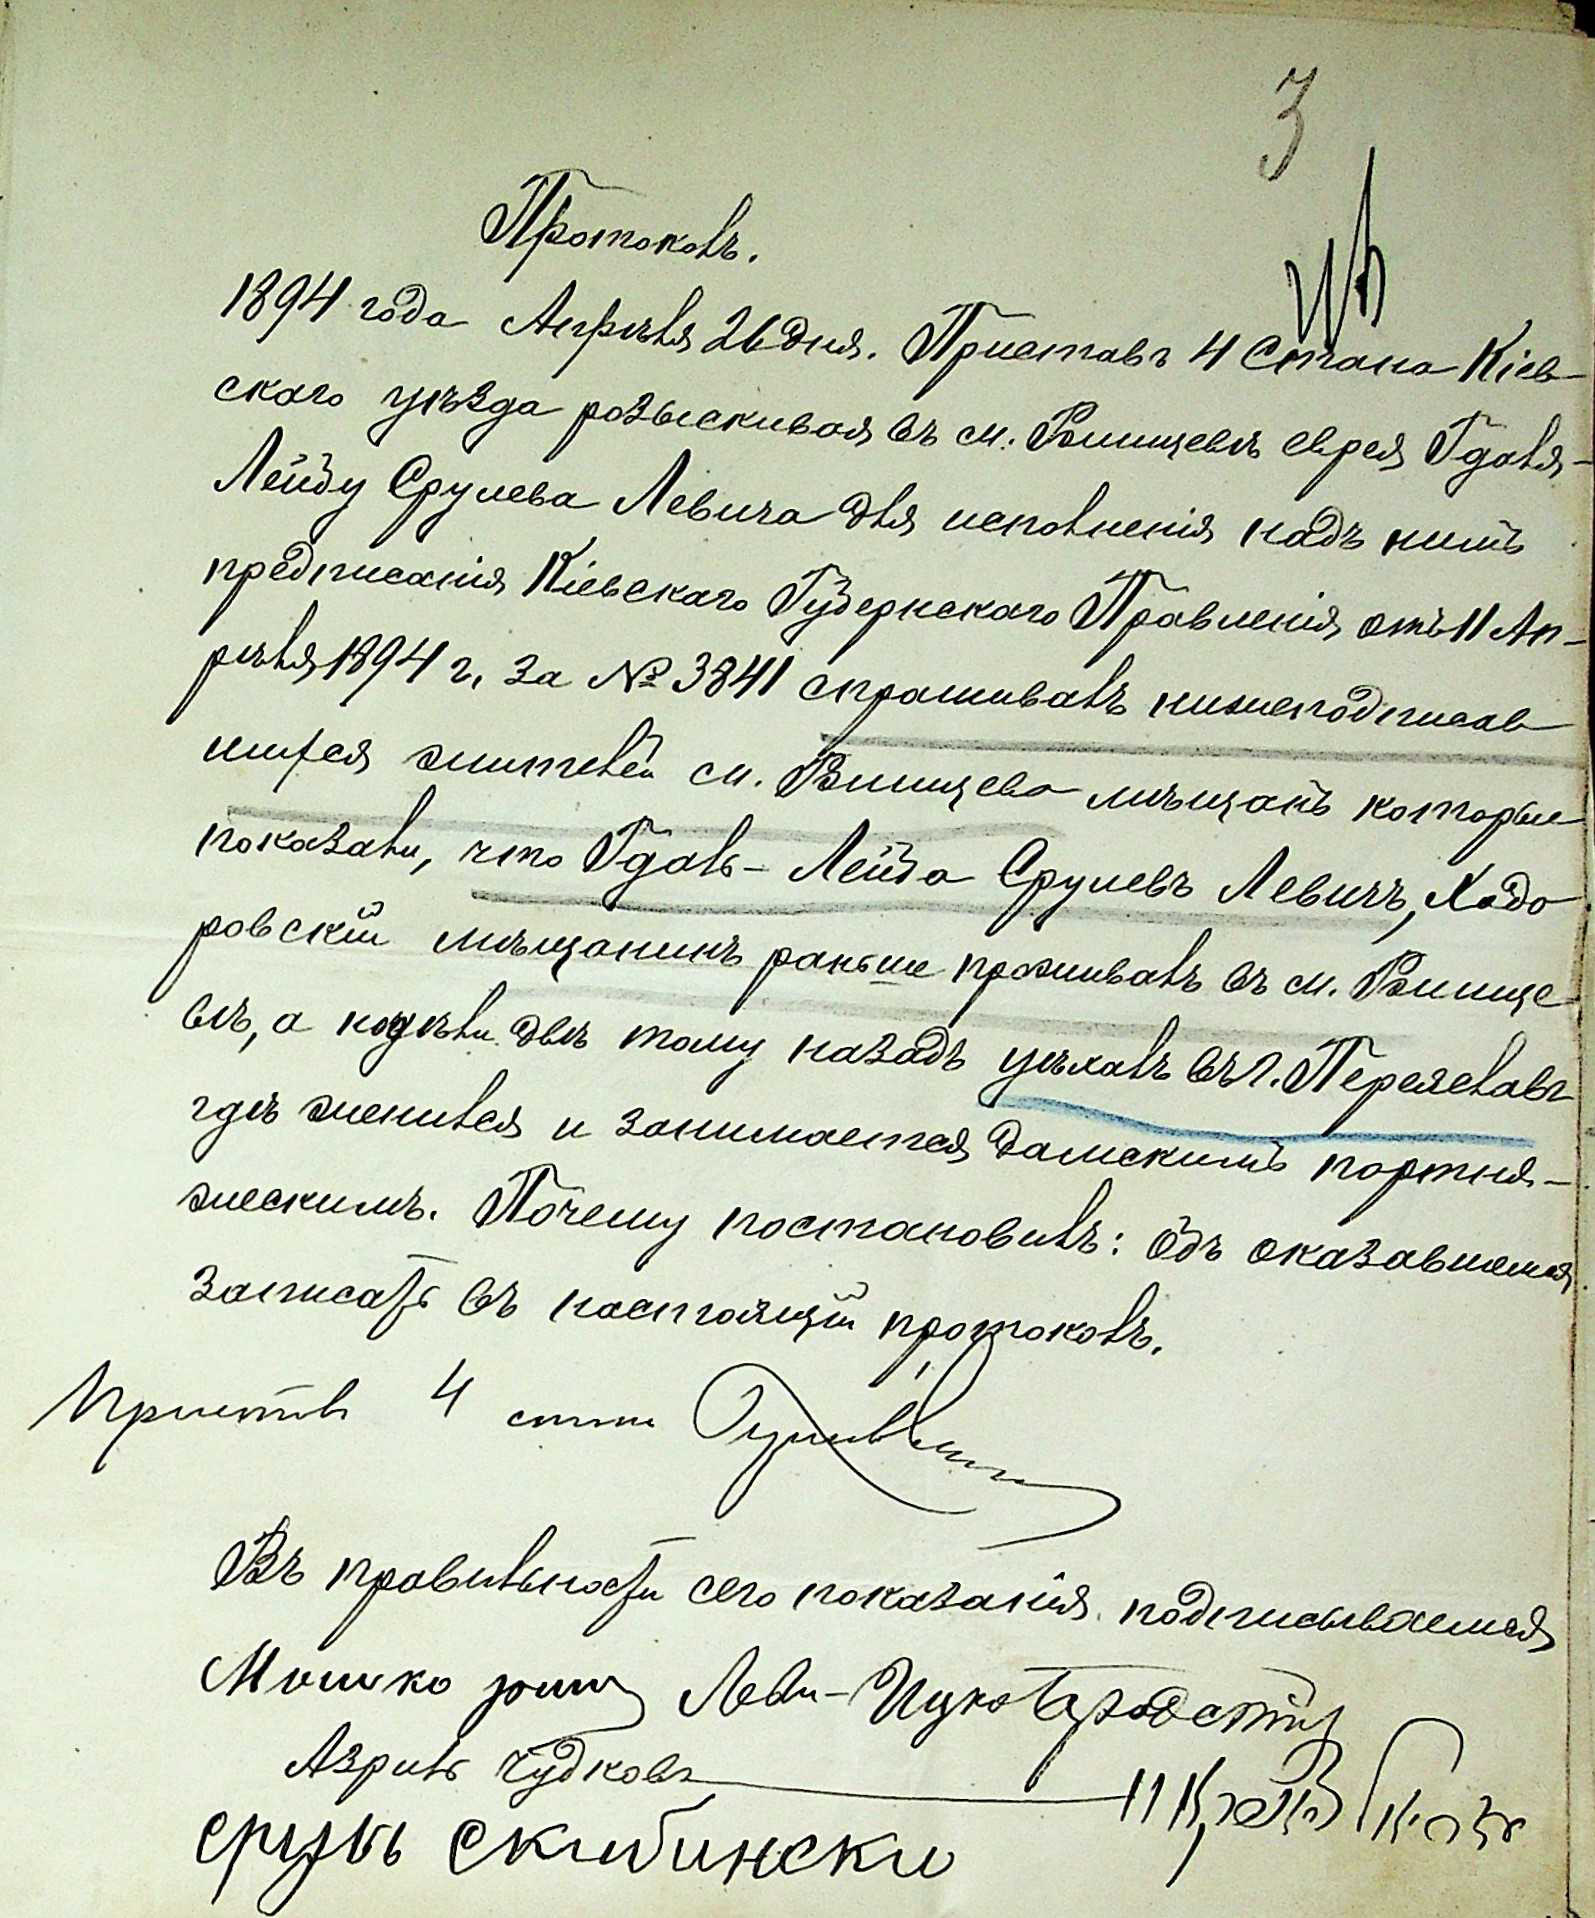 3
Протоколъ.
1894 года Апрѣля 26 дня. Приставъ 4 Стана Кіев-
скаго уѣзда розыскивая въ м. Ржищевѣ еврея Гдаля-
Лейзу Срулева Левича для исполненія надъ нимъ
предписанія Кіевскаго Губернскаго Правленія отъ 11 Ап-
рѣля 1894 г. за № 3841 спрашивалъ нижеподписав
шихся жителей м. Ржищева мѣщанъ которые
показали, что Гдаль-Лейза Срулевъ Левичъ, Ходо
ровскій мѣщанинъ раньше проживалъ въ м. Ржище
вѣ, а недѣли двѣ тому назадъ уѣхалъ въ г. Переяславъ
гдѣ женился и занимается дамскимъ портня-
жескимъ. Почему постановилъ: объ оказавшемся
записать въ настоящій протоколъ.
Приставъ 4 стана
Въ правильности сего показанія подписываемся
Мошко Лейб-Ицко
Азриль Чудковъ
Сруль Скибински